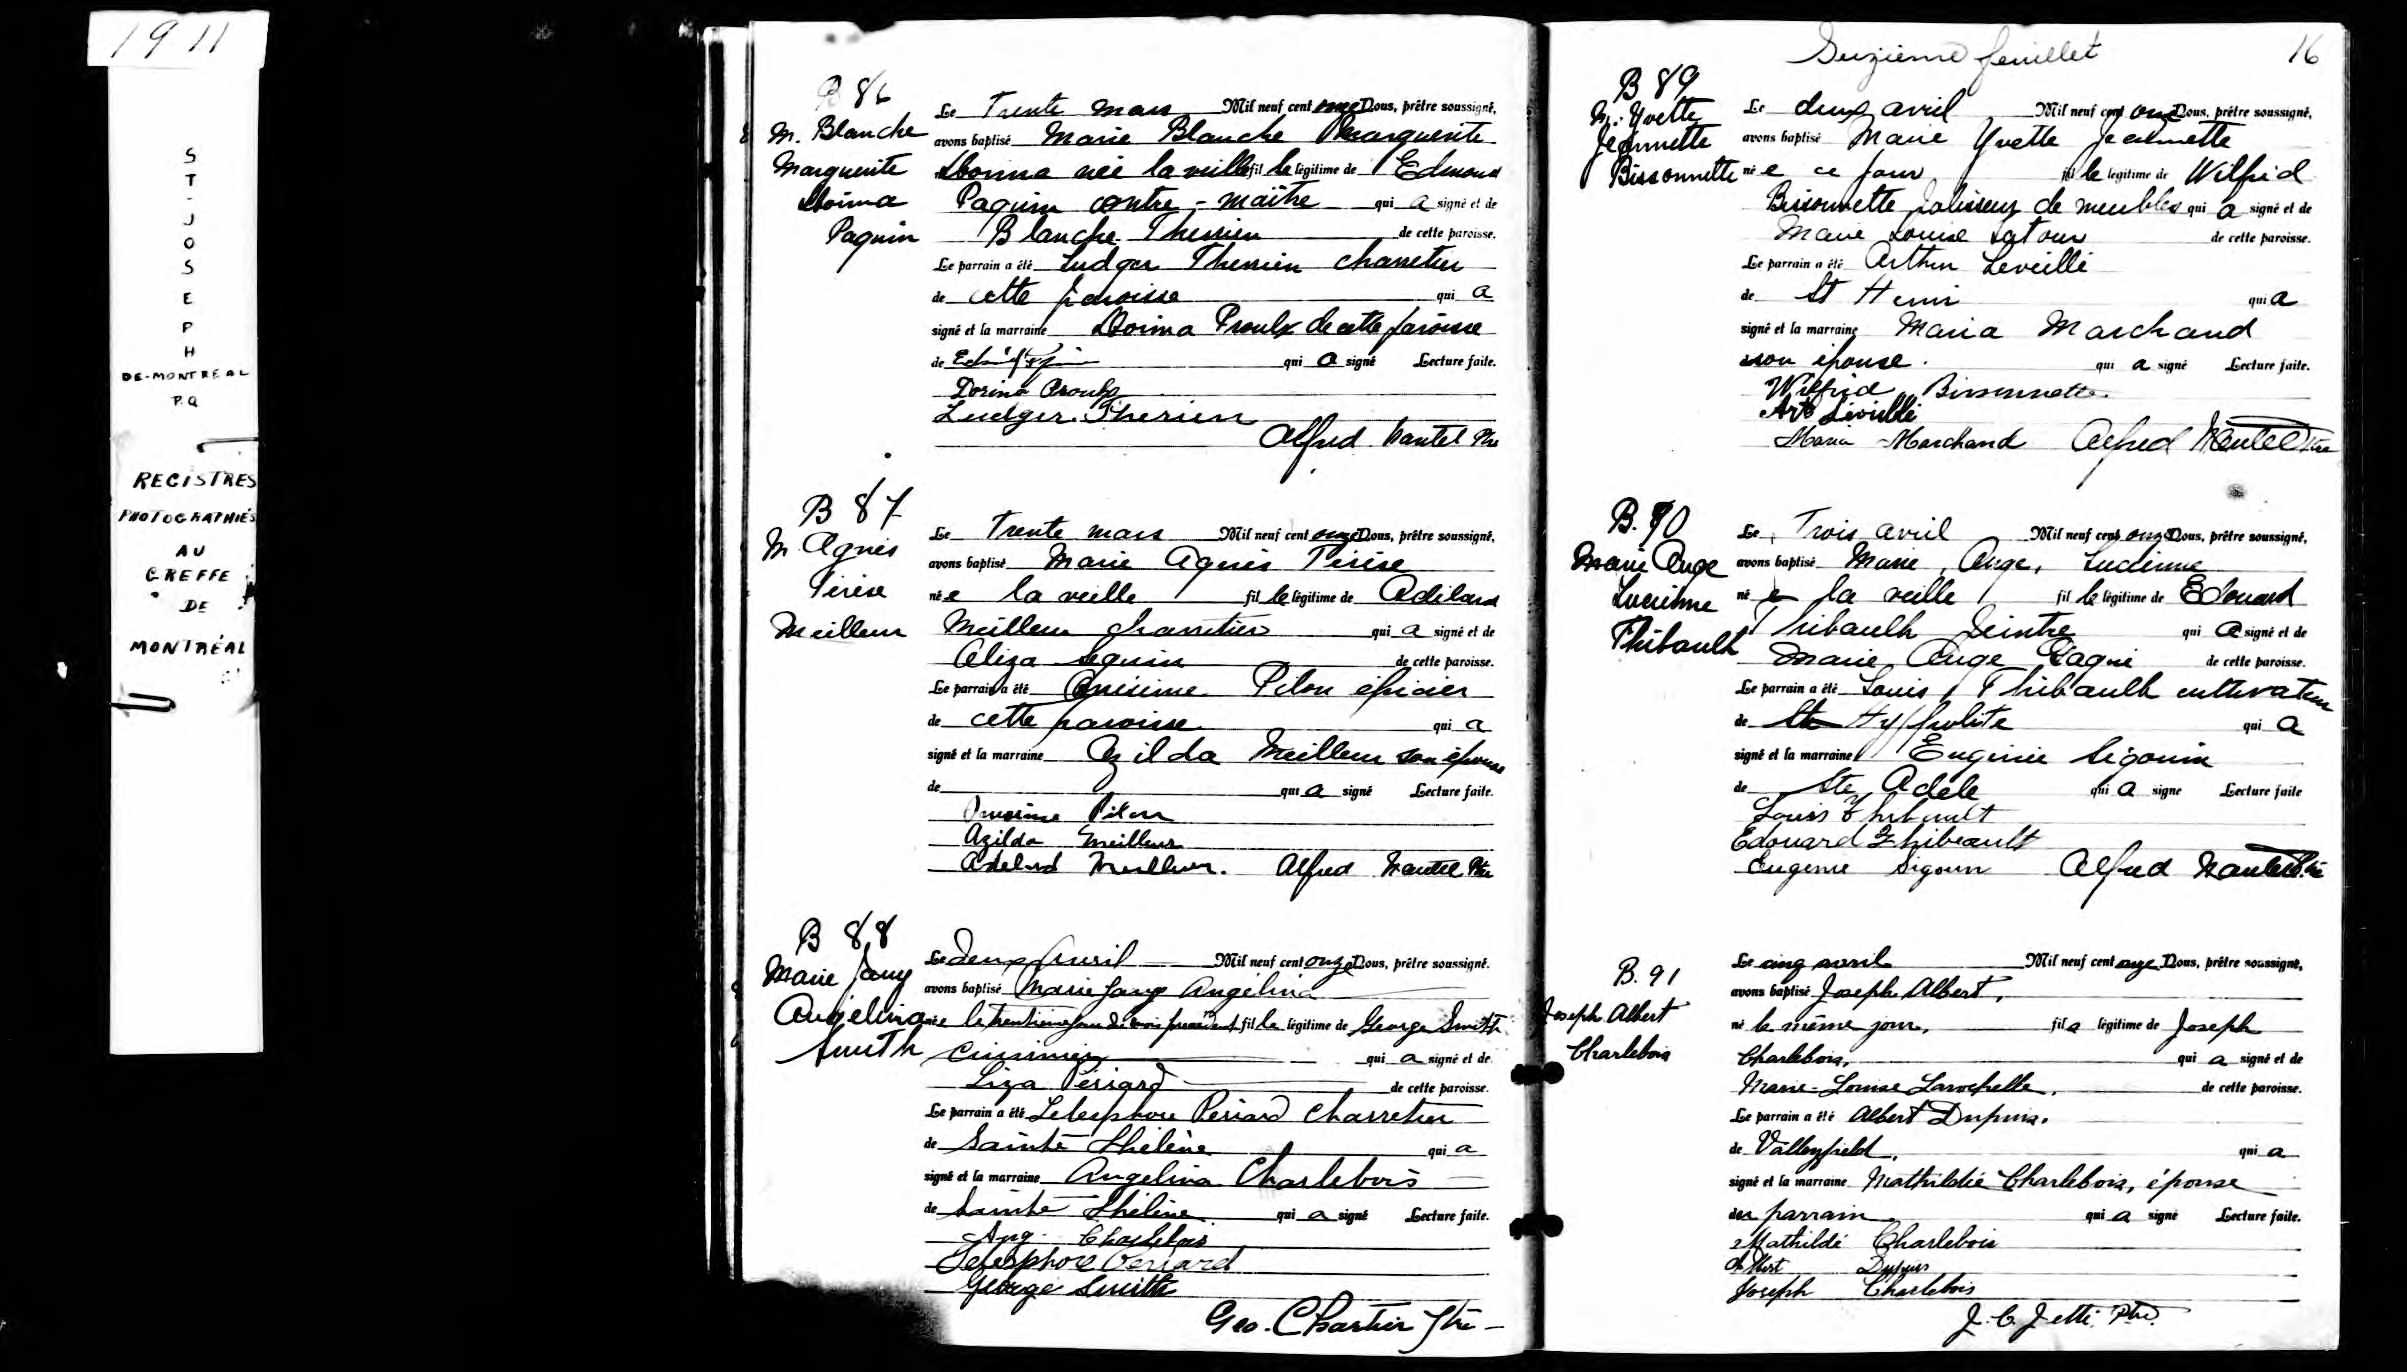 1911
ST-JOSEPH
DE-MONTREAL
P.Q
REGISTRES
PHOTOGRAPHIÉS
AU
GREFFE
DE
MONTRÉAL
B 86
M. Blanche
Marguerite
Dorima
Paquin
Le Trente mars Mil neuf cent onze Nous, prêtre soussigné,
avons baptisé Marie Blanche Marguerite
née la veille fille légitime de Edmond
Paquin contre-maître qui a signé et de
Blanche Therrien de cette paroisse.
Le parrain a été Ludger Therrien charretier
de cette paroisse qui a
signé et la marraine Dorima Proulx de cette paroisse
de qui a signé Lecture faite.
Dorima Proulx
Ludger Therien
Alfred Nantel Ptre
B 87
M Agnès
Térèse
Meilleur
Le Trente mars Mil neuf cent onze Nous, prêtre soussigné,
avons baptisé Marie Agnès Térèse
née la veille fille légitime de Adélard
Meilleur charretier qui a signé et de
Aliza Seguin de cette paroisse.
Le parrain a été Onésime Pilon épicier
de cette paroisse qui a
signé et la marraine Azilda Meilleur son épouse
de qui a signé Lecture faite.
Onésime Pilon
Azilda Meilleur
Adelard Meilleur. Alfred Nantel Ptre
B 88
Marie Jany
Angelina
Smith
Le deux Avril Mil neuf cent onze Nous, prêtre soussigné.
avons baptisé Marie Jany Angélina
née le trentième jour du mois précédent fille légitime de George Smith
cuisinier qui a signé et de
Liza Périard de cette paroisse.
Le parrain a été Telesphore Périard charretier
de Sainte Hhélène qui a
signé et la marraine Angelina Charlebois
de Sainte Hhélène qui a signé Lecture faite.
Ang. Charlebois
Telesphore Periard
George Smith
Geo. Chartier Ptre
Seizième feuillet 16
B 89
M. Yvette
Jeannette
Bissonnette
Le deux avril Mil neuf cent onze Nous, prêtre soussigné,
avons baptisé Marie Yvette Jeannette
née ce jour fille légitime de Wilfrid
Bissonnette polisseur de meubles qui a signé et de
Marie Louise Latour de cette paroisse.
Le parrain a été Arthur Leveillé
de St Henri qui a
signé et la marraine Maria Marchand
son épouse. qui a signé Lecture faite.
Wilfrid Bissonnette
Art Léveillé
Maria Marchand Alfred Nantel Ptre
B. 90
Marie Ange
Lucienne
Thibault
Le Trois avril Mil neuf cent onze Nous, prêtre soussigné,
avons baptisé Marie, Ange, Lucienne
née la veille fille légitime de Edouard
Thibault peintre qui a signé et de
Marie Ange Gagné de cette paroisse.
Le parrain a été Louis Thibault cultivateur
de St Hyppolite qui a
signé et la marraine Eugénie Sigouin
de Ste Adele qui a signé Lecture faite
Louis Thibault
Edouard Thibeault
Eugenie Sigouin Alfred Nantel Ptre
B. 91
Joseph Albert
Charlebois
Le cinq avril Mil neuf cent onze Nous, prêtre soussigné,
avons baptisé Joseph Albert,
né le même jour, fils légitime de Joseph
Charlebois, qui a signé et de
Marie-Louise Larochelle, de cette paroisse.
Le parrain a été Albert Dupuis.
de Valleyfield, qui a
signé et la marraine Mathildée Charlebois, épouse
du parrain qui a signé Lecture faite.
Mathildé Charlebois
Albert Dupuis
Joseph Charlebois
J. C. Jetté Ptre.